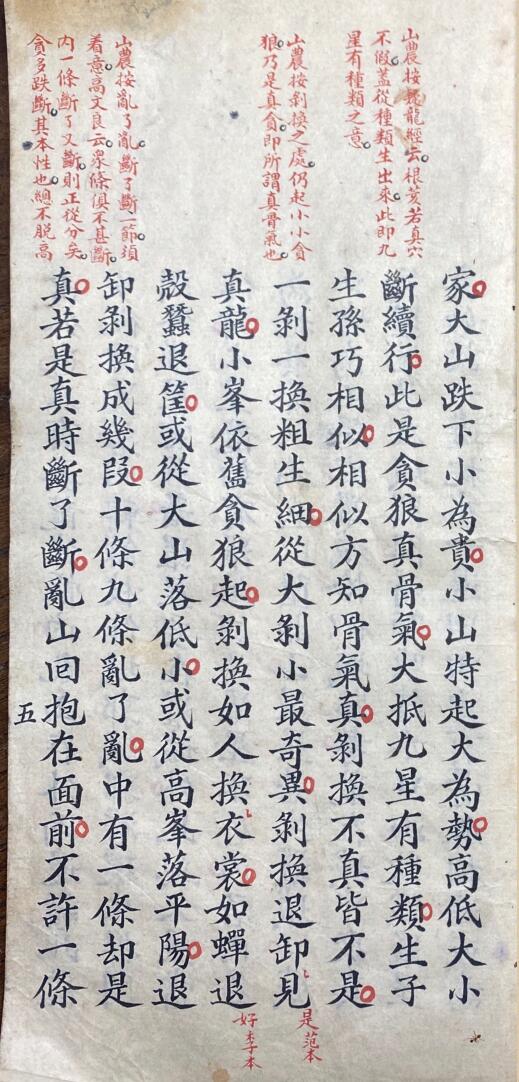 山農按疑龍經云根荄若真穴
不假蓋從種類生出來此即九
星有種類之意
山農按剝換之處仍起小小貪
狼乃是真貪即所謂真骨氣也
山農按亂了亂斷了斷二節須
着意高文良云眾條俱不甚斷
内一條斷了又斷則正從分矣
貪多跌斷其本性也總不脫高
家大山跌下小為貴小山特起大為勢高低大小
斷續行此是貪狼真骨氣大抵九星有種類生子
生孫巧相似相似方知骨氣真剝換不真皆不是
一剝一換粗生細從大剝小最奇異剝換退卸見
是范本
真龍小峯依舊貪狼起剝換如人換衣裳如蟬退
好李本
殼蠶退筐或從大山落低小或從高峯落平陽退
卸剝換成幾段十條九條亂了亂中有一條却是
真若是真時斷了斷亂山回抱在面前不許一條
五